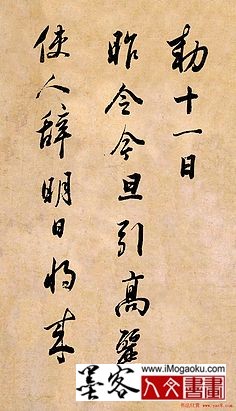 勅十一日
昨令今旦引高麗
使人辞明日将来
www.iMogaoku.com
墨客
人文書畫